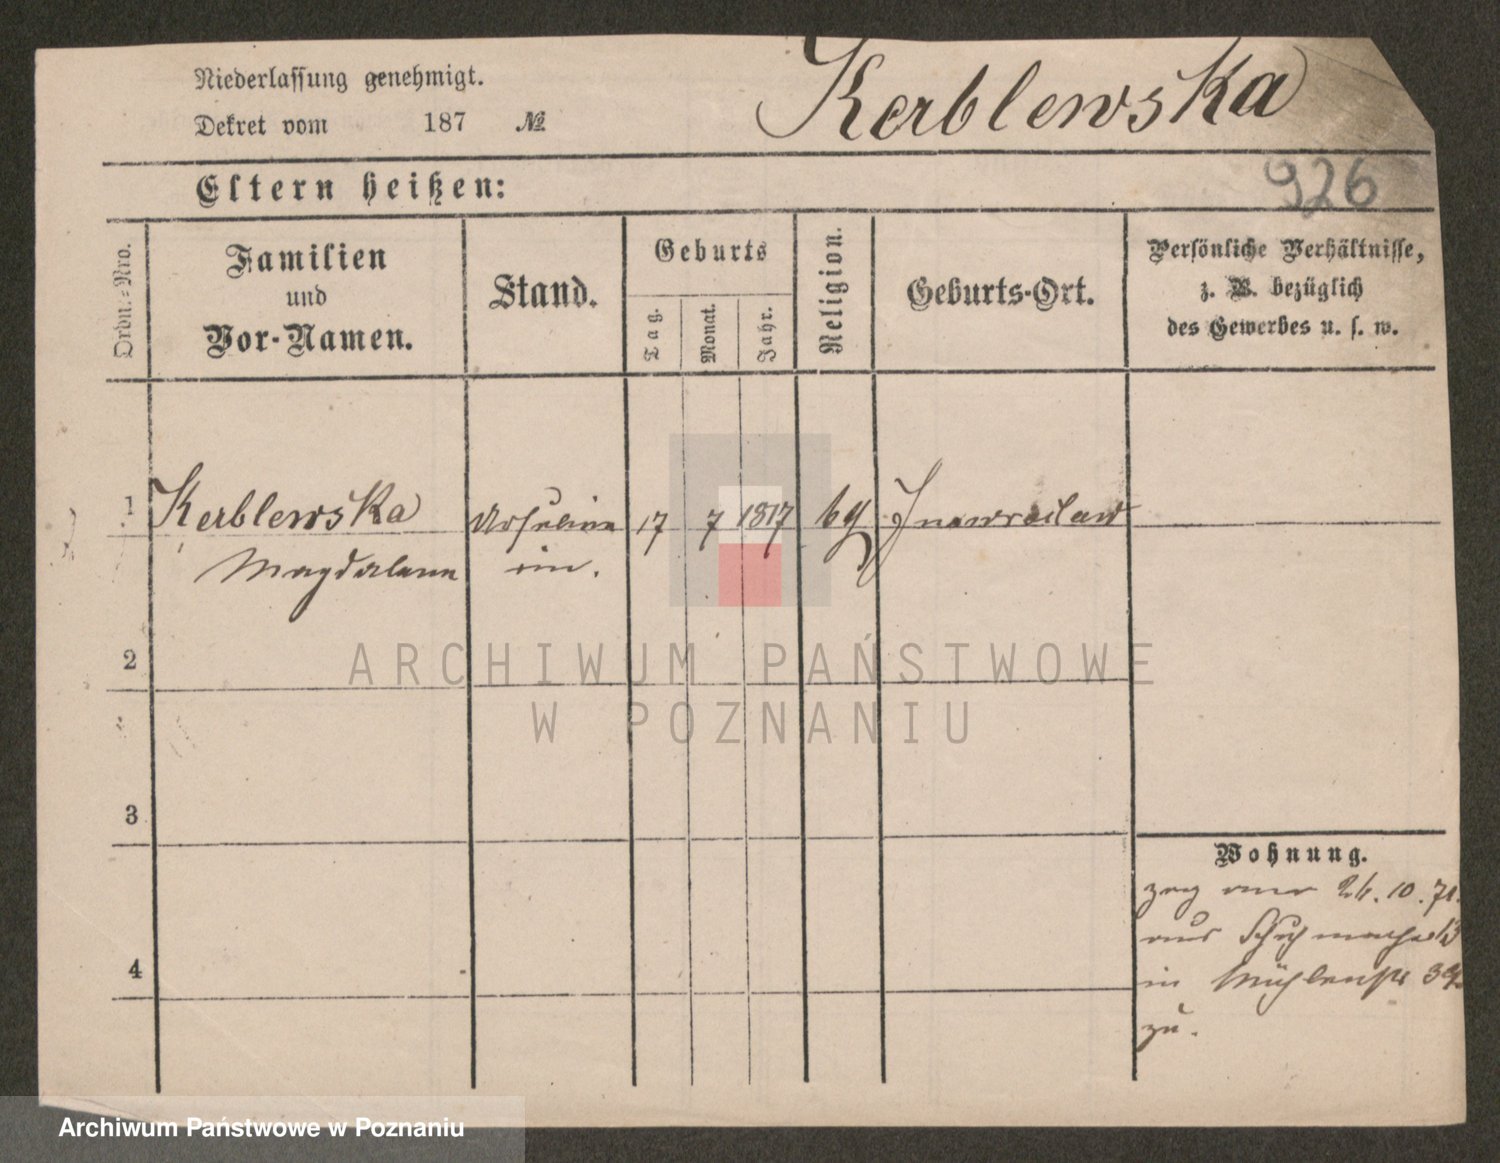 Niederlassung genehmigt.
Dekret vom 187 №
Kerblewska
926
Eltern heißen:
Ordn.=Nro.
Familien
und
Vor-Namen.
Stand.
Geburts
Tag.
Monat.
Jahr.
Religion.
Geburts-Ort.
Persönliche Verhältnisse,
z. B. bezüglich
des Gewerbes u. s. w.
1 Kerblewska Ursulin 17 7 1817 Inowraclaw
Magdalena in.
2
ARCHIWUM PAŃSTWOWE
W POZNANIU
3
Wohnung.
zog 26. 10. 71.
aus Schuhmacher 13
4
in Mühlenstr 39
zu.
Archiwum Państwowe w Poznaniu